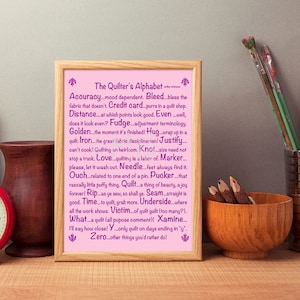 The Quilter's Alphabet
Accuracy...mood dependent. Bleed...bless the
fabric that doesn't. Credit card...purrs in a quilt shop.
Distance...at which points look good. Even ...well,
does it even? Fudge...adjustment terminology.
Golden...the moment it's finished! Hug...wrap up in a
quilt. Iron...the great fabric Justify...
can't cook! Quilting an heirloom. Knot...size need not
stop a truck. Love...quilting is a labor of. Marker...
please, let it wash out. Needle...feet always find it.
Ouch...related to one end of a pin. Pucker...that
rascally little puffy thing. Quilt...a thing of beauty, a joy
forever! Rip...as ye sew, so shall ye. Seam...straight is
good. Time...to quilt, grab more. Underside...where
all the work shows. Victim...of quilt guilt (too many?).
What...a quilt (all purpose comment)! Xamine...
I'll say how close! Y...only quilt on days ending in "y".
Zero...other things you'd rather do!